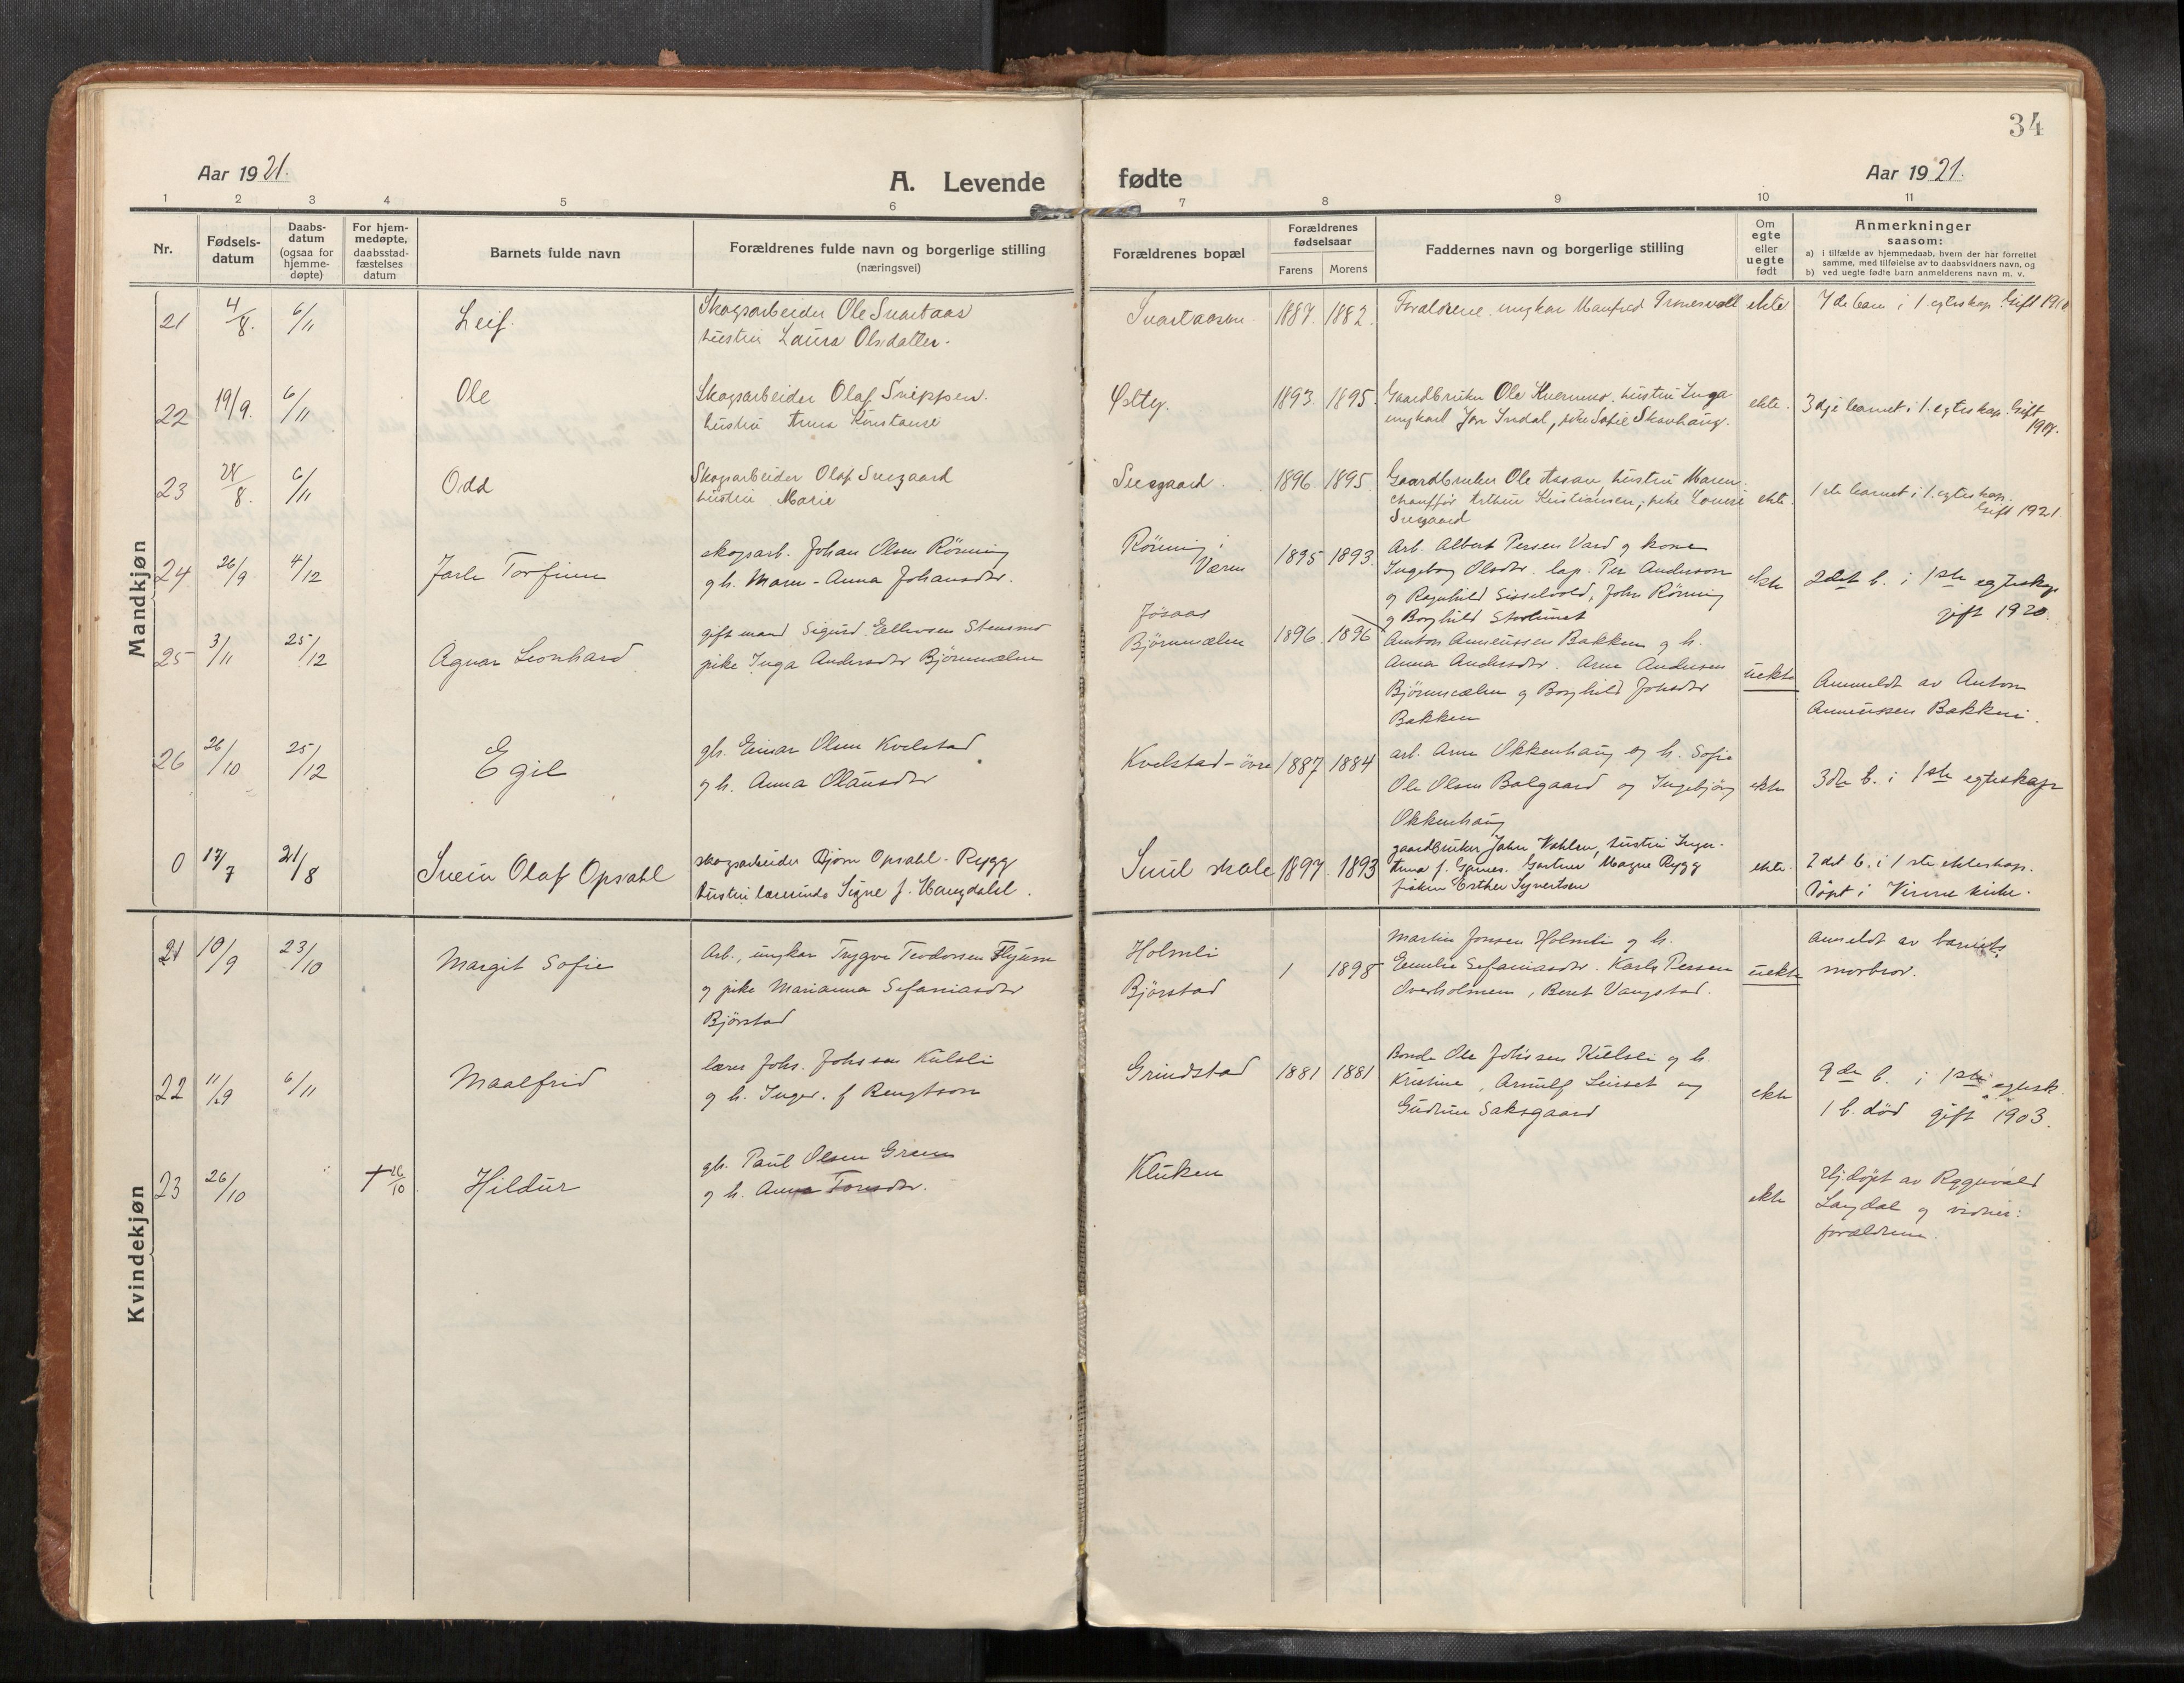 34
Aar 1921.
A. Levende fødte
Aar 1921.
1 2 3 4 5 6 7 8 9 10 11
Nr.
Fødsels-
datum
Daabs-
datum
(ogsaa for
hjemme-
døpte)
For hjem-
medøpte,
daabsstad-
fæstelses
datum
Barnets fulde navn
Forældrenes fulde navn og borgerlige stilling
(næringsvei)
Forældrenes bopæl
Forældrenes
fødselsaar
Farens Morens
Faddernes navn og borgerlige stilling
Om
egte
eller
uegte
født
Anmerkninger
saasom:
a) i tilfælde av hjemmedaab, hvem der har forrettet
samme, med tilføielse av to daabsvidners navn, og
b) ved uegte fødte barn anmelderens navn m. v.
Mandkjøn
21 4/8. 6/11 Leif.
Skogsarbeider Ole Svartaas
hustru Laura Olsdatter.
Svartaasen 1887. 1882.
Forældrene. ungkar Manfred ekte
7de barn i 1. egteskap. Gift
22 19/9. 6/11 Ole
Skogsarbeider Olaf
hustru Anna Konstanse
1893. 1895.
Gaardbruker Ole hustru Inga
ungkarl Jon Indal, pike Sofie Skavhaug.
ekte.
3dje barnet i 1. egteskap. Gift
23 28/8. 6/11 Odd
Skogsarbeider Olaf
hustru Marie
1896. 1895.
Gaardbruker Ole Aasan, hustru Maren.
chauffør Arthur Kristiansen, pike Louise
ekte.
1ste barnet i 1. egteskap.
Gift 1921.
24 26/9 4/12 Jarle Torfinn
skogsarb. Johan Olsen Rönning
g h. Maren-Anna Johansdtr.
Rönning i
Væren
1895 1893.
Arb. Albert Persen Vard g kone
Ingeborg Olsdtr. lap. Per Anderson
og Ragnhild Sisselvold, John Rönning
g Borghild
ekte
2det b. i 1ste egteskap
gift 1920.
25 3/11 25/12 Agnar Leonhard
gift mand Sigurd Ellevsen Stensmo
pike Inga Andersdtr Björnmælen
Jøsaas
Björnmælen
1896. 1896
Anton Anneussen Bakken g h.
Anna Andersdtr. Arne Andersen
Björnmælen g Borghild Johsdtr
Bakken
uekte
Anmeldt av Anton
Anneussen Bakken.
26 26/10 25/12 Egil
gb. Einar Olsen Kvelstad
g h. Anna Olausdtr
Kvelstad-övre 1887 1884
arb. Arne Okkenhaug og h. Sofie
Ole Olsen Balgaard og Ingebjörg
Okkenhaug
ekte
3die b. i 1ste egteskap
0 17/7 21/8 Svein Olaf Opsahl
skogsarbeider Bjørn Opsahl-Rygg
hustru lærerinde Signe f. Haugdahl.
Suul skole 1897. 1893
gaardbruker John Vohlen, hustru Inger-
Anna f. Garnes. Gartner Magne Rygg
frøken Esther Syvertsen
ekte.
2det b. i 1ste ekteskap.
Døpt i Vinne kirke.
Kvindekjøn
21 10/9 23/10 Margit Sofie
Arb., ungkar Trygve Teodorsen
g pike Marianna Sefaniasdtr
Björstad
Holmli
Björstad
1 1898
Martin Jonsen Holmli g h.
Emelie Sefaniasdtr. Karl Persen
Overholmen, Beret Vangstad.
uekte
anmeldt av barnets
morbror.
22 11/9 6/11 Maalfrid
lærer Johs. Johssen Kulsli
g h. Inger. f Bengtson
Grindstad 1881 1881
Bonde Ole Johssen Kulsli g h.
Kristine, Arnulf Leirset og
Gudrun Saksgaard
ekte
9de b. i 1ste egtesk.
1 b. död gift 1903.
23 26/10 † 26/10 Hildur
gb. Paul Olsen Gram
g h. Anna Toresdtr.
Kluken
ekte
Hj.døpt av Ragnvald
Langdal g vidner:
forældrene.